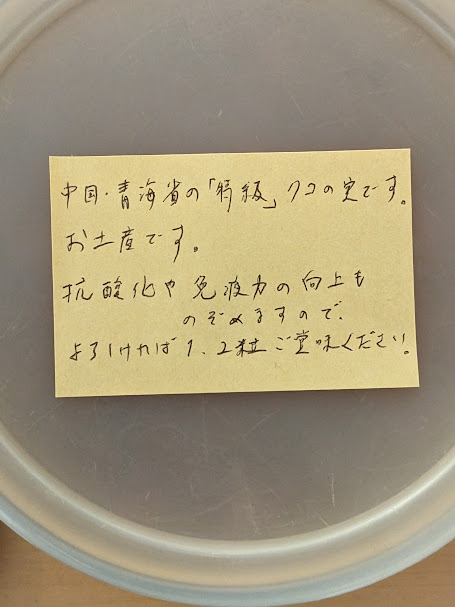 中国・青海省の「特級」クコの実です。
お土産です。
抗酸化や免疫力の向上も
のぞめますので、
よろしければ1、2粒ご賞味ください。